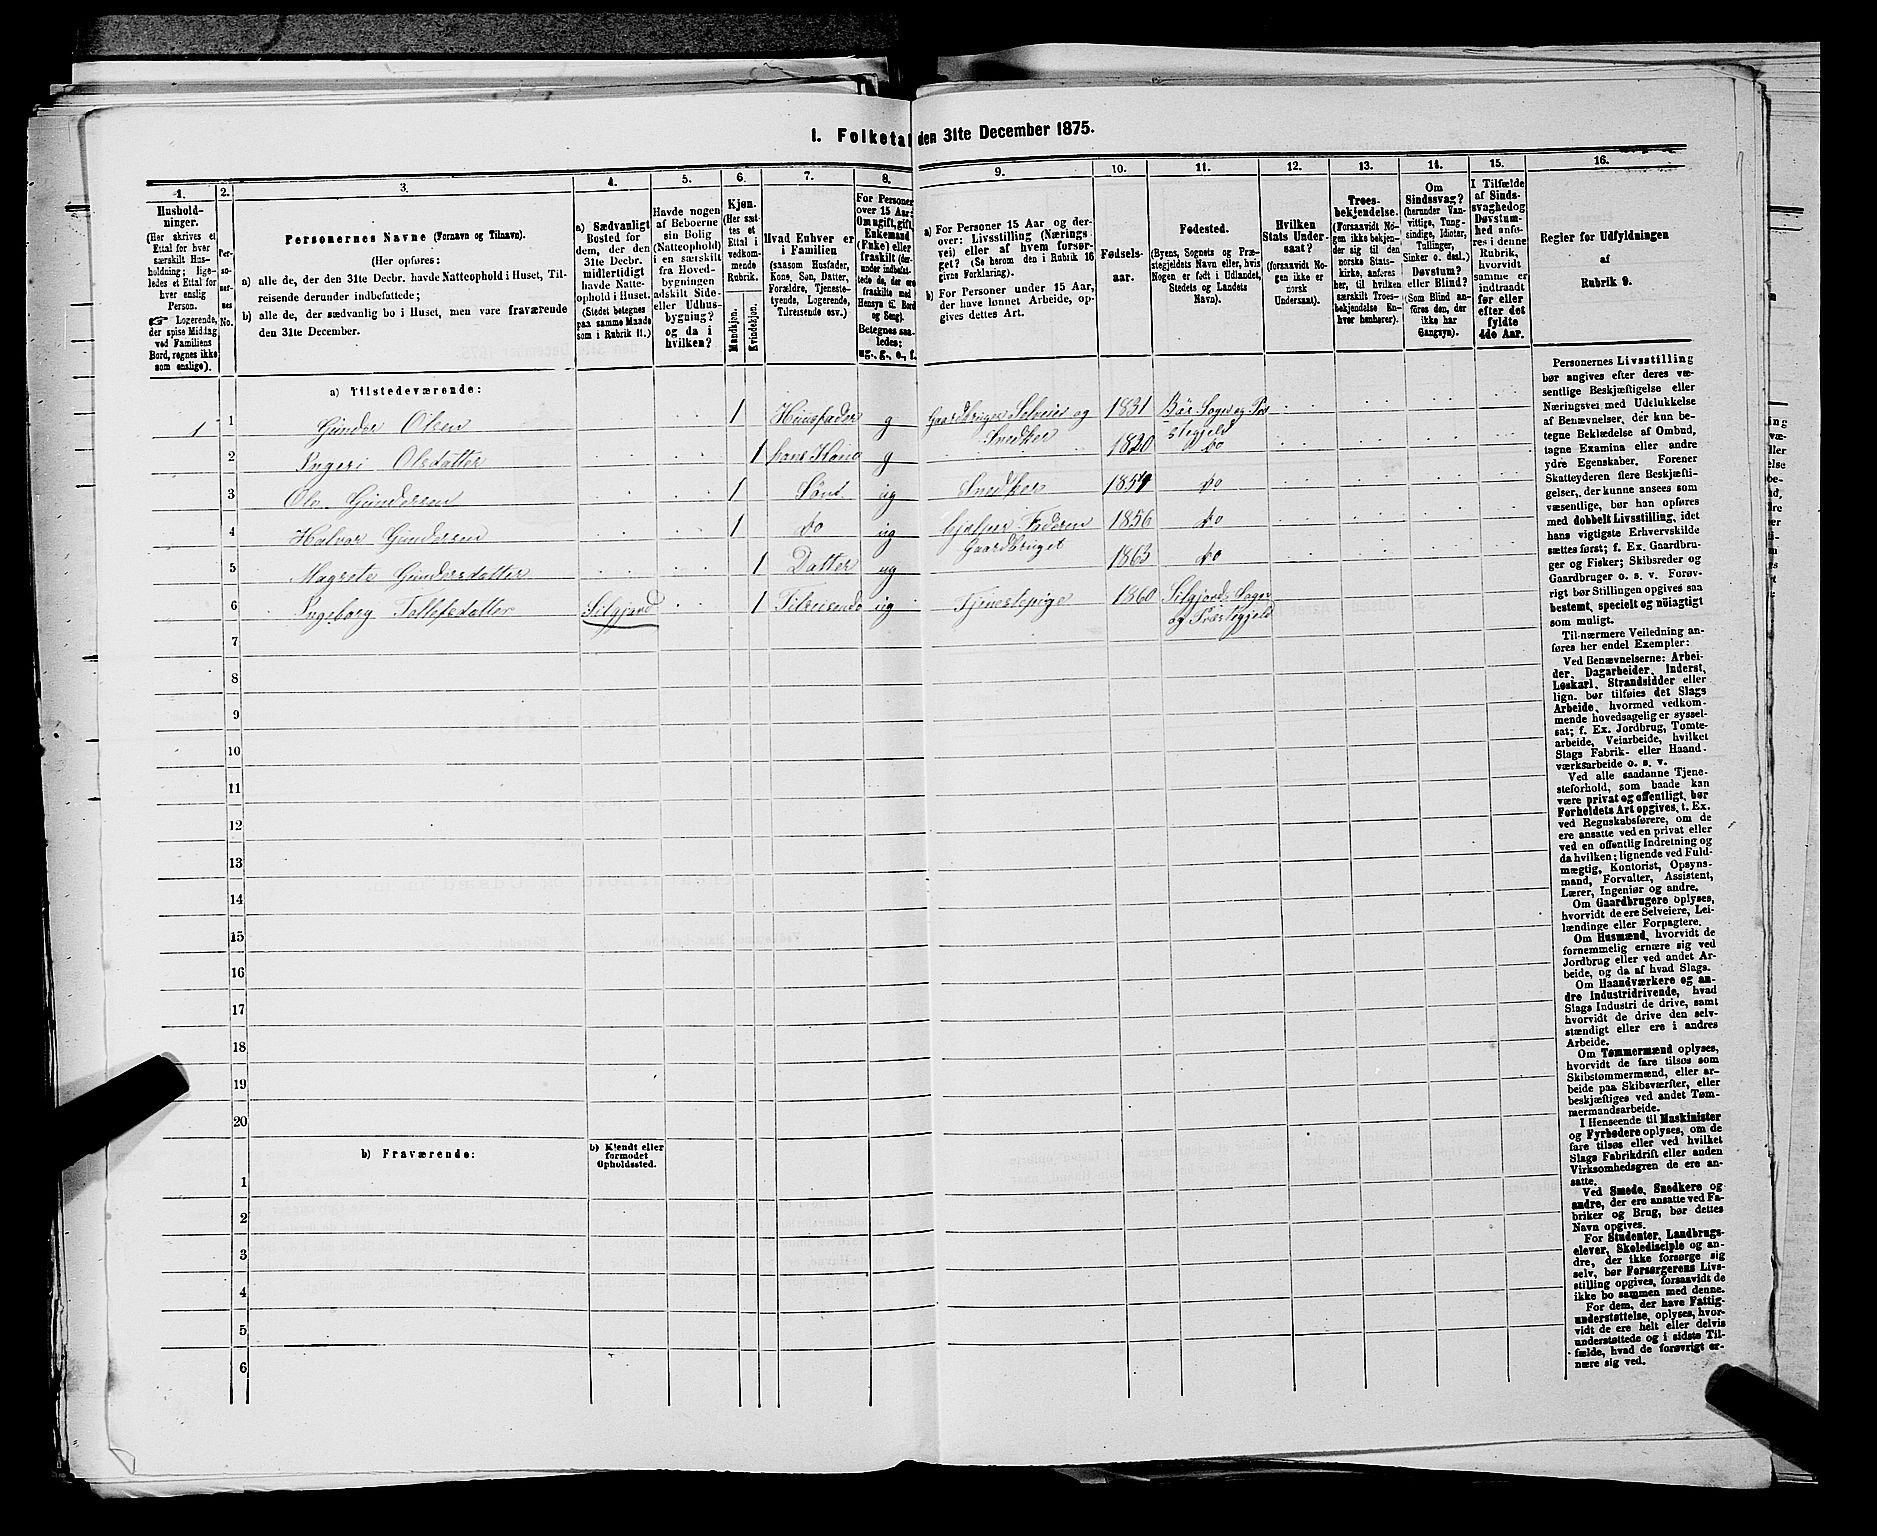 I. Folketal den 31te December 1875.
1. 2. 3. 4. 5. 6. 7. 8. 9. 10. 11. 12. 13. 14. 15. 16.
Hushold-
ninger.
(Her skrives et
Ettal for hver
særskilt Hus-
holdning; lige-
ledes et Ettal for
hver enslig
Person.
☞ Logerende,
der spise Middag
ved Familiens
Bord, regnes ikke
som enslige).
Per-
so-
ner-
nes
No.
Personernes Navne (Fornavn og Tilnavn).
(Her opføres:
a) alle de, der den 31te Decbr. havde Natteophold i Huset, Til-
reisende derunder indbefattede;
b) alle de, der sædvanlig bo i Huset, men vare fraværende
den 31te December.
a) Sædvanligt
Bosted for
dem, der den
31te Decbr.
midlertidigt
havde Natte-
ophold i Huset.
(Stedet betegnes
paa samme Maade
som i Rubrik 11.)
Havde nogen
af Beboerne
sin Bolig
(Natteophold)
i en særskilt
fra Hoved-
bygningen
adskilt Side-
eller Udhus-
bygning?
og da i
hvilken?
Kjøn.
(Her sæt-
tes et
Ettal i
vedkom-
mende
Rubrik.
Mandkjøn.
Kvindekjøn.
Hvad Enhver er
i Familien
(saasom Husfader,
Kone, Søn, Datter,
Forældre, Tjeneste-
tyende, Logerende,
Tilreisende osv.)
For Personer
over 15 Aar:
Om ugift, gift,
Enkemand
(Enke) eller
fraskilt (der-
under indbefat-
tede de, der ere
fraskilte med
Hensyn til Bord
og Seng).
Betegnes saa-
ledes:
ug., g., e., f.
a) For Personer 15 Aar og der-
over: Livsstilling (Nærings-
vei) eller af hvem forsør-
get? (Se herom den i Rubrik 16
givne Forklaring).
b) For Personer under 15 Aar,
der have lønnet Arbeide, op-
gives dettes Art.
Fødsels-
aar.
Fødested.
(Byens, Sognets og Præ-
stegjeldets Navn eller, hvis
Nogen er født i Udlandet,
Stedets og Landets
Navn).
Hvilken
Stats Under-
saat?
(forsaavidt No-
gen ikke er
norsk
Undersaat).
Troes-
bekjendelse.
(Forsaavidt No-
gen ikke bekjen-
der sig til den
norske Stats-
kirke, anføres
her, til hvilken
særskilt Troes-
bekjendelse En-
hver henhører).
Om
Sindssvag?
(herunder Van-
vittige, Tung-
sindige, Idioter,
Tullinger,
Sinker o. desl.)
Døvstum?
eller Blind?
(Som Blind an-
føres den, der
ikke har
Gangsyn).
I Tilfælde
af Sinds-
svaghed og
Døvstum-
hed anfø-
res i denne
Rubrik,
hvorvidt
samme er
indtraadt
før eller
efter det
fyldte
4de Aar.
Regler for Udfyldningen
af
Rubrik 9.
a) Tilstedeværende:
1 1 Gunder Olsen 1 Huusfader g Gaardbruger Selveier og Snedker 1831 Bär Sogn og Præ-
stegjeld
2 Ingeri Olsdatter 1 hans Kone g 1820 do
3 Ole Gundersen 1 Sönt ug Snedker 1854 do
4 Halvor Gundersen 1 do ug hjelper Faderen Gaardbruget 1856 do
5 Magrete Gundersdatter 1 Datter ug 1863 do
6 Ingeborg Tollefsdatter Silgjord 1 Tilreisende ug Tjenestepige 1860 Silgjords Sogn
og Præstegjeld
7
8
9
10
11
12
13
14
15
16
17
18
19
20
b) Fraværende:
b) Kjendt eller
formodet
Opholdssted.
1
2
3
4
5
6
Personernes Livsstilling
bør angives efter deres væ-
sentlige Beskjæftigelse eller
Næringsvei med Udelukkelse
af Benævnelser, der kun be-
tegne Beklædelse af Ombud,
tagne Examina eller andre
ydre Egenskaber. Forener
Skatteyderen flere Beskjæfti-
gelser, der kunne ansees som
væsentlige, bør han opføres
med dobbelt Livsstilling, idet
hans vigtigste Erhvervskilde
sættes først; f. Ex. Gaardbru-
ger og Fisker; Skibsreder og
Gaardbruger o. s. v. Forøv-
rigt bør Stillingen opgives saa
bestemt, specielt og nøiagtigt
som muligt.
Til nærmere Veiledning an-
føres her endel Exempler:
Ved Benævnelserne: Arbei-
der, Dagarbeider, Inderst,
Løskarl, Strandsidder eller
lign. bør tilføies det Slags
Arbeide, hvormed vedkom-
mende hovedsagelig er syssel-
sat; f. Ex. Jordbrug, Tomte-
arbeide, Veiarbeide, hvilket
Slags Fabrik- eller Haand-
værksarbeide o. s. v.
Ved alle saadanne Tjene-
steforhold, som baade kan
være privat og offentligt, bør
Forholdets Art opgives, t. Ex.
ved Regnskabsførere, om de
ere ansatte ved en privat eller
ved en offentlig Indretning og
da hvilken; lignende ved Fuld-
mægtig, Kontorist, Opsyns-
mand, Forvalter, Assistent,
Lærer, Ingeniør og andre.
Om Gaardbrugere oplyses,
hvorvidt de ere Selveiere, Lei-
lændinge eller Forpagtere.
Om Husmænd, hvorvidt de
fornemmelig ernære sig ved
Jordbrug eller ved andet Ar-
beide, og da af hvad Slags.
Om Haandværkere og an-
dre Industridrivende, hvad
Slags Industri de drive, samt
hvorvidt de drive den selv-
stændigt eller ere i andres
Arbeide.
Om Tømmermænd oplyses,
hvorvidt de fare tilsøs som
Skibstømmermænd, eller ar-
beide paa Skibsværfter, eller
beskjæftiges ved andet Tøm-
mermandsarbeide.
I Henseende til Maskinister
og Fyrbødere oplyses, om de
fare tilsøs eller ved hvilket
Slags Fabrikdrift eller anden
Virksomhedsgren de ere an-
satte.
Ved Smede, Snedkere og
andre, der ere ansatte ved Fa-
briker og Brug, bør dettes
Navn opgives.
For Studenter, Landbrugs-
elever, Skoledisciple og an-
dre, der ikke forsørge sig
selv, bør Forsørgerens Livs-
stilling opgives, forsaavidt de
ikke bo sammen med denne.
For dem, der have Fattig-
understøttelse, oplyses, hvor-
vidt de ere helt eller delvis
understøttede og i sidste Til-
fælde, hvad de forøvrigt er-
nære sig ved.